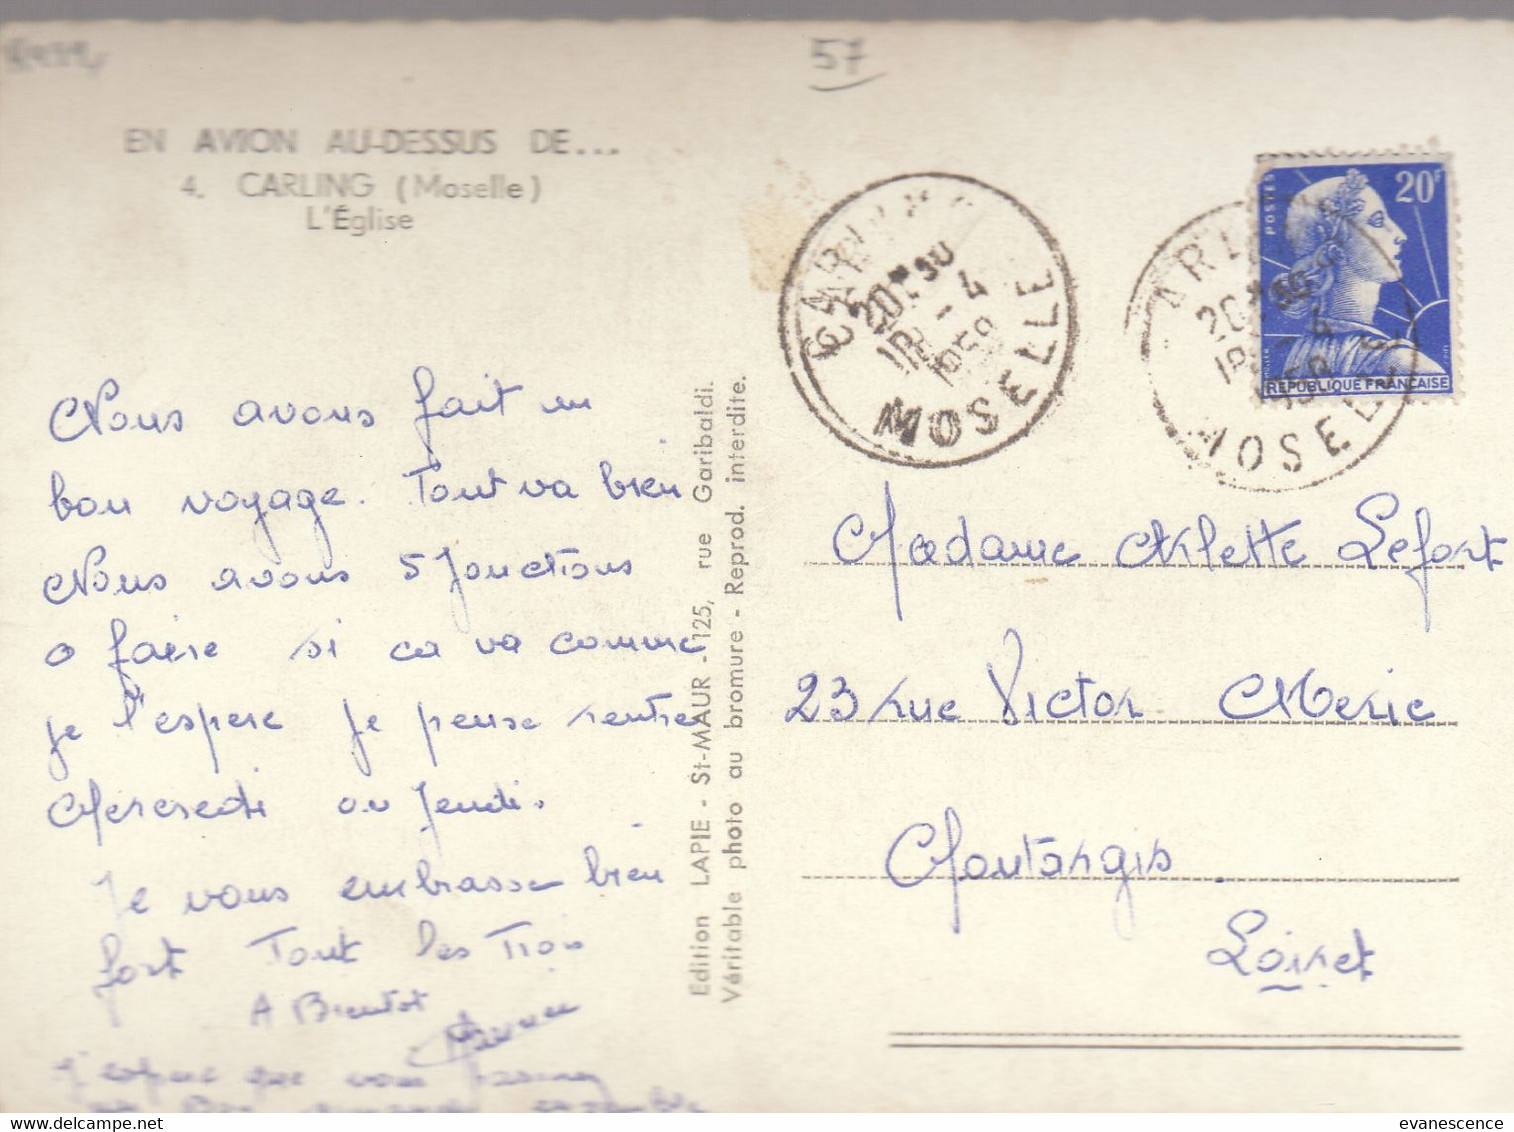 57
EN AVION AU-DESSUS DE...
4. CARLING (Moselle)
L'Église
Nous avons fait un
bon voyage. Tout va bien
Nous avons 5 Jonctions
a faire si ca va comme
je l'espere je pense rentrer
Mercredi ou Jeudi.
Je vous embrasse bien
fort Tout les Trois
A Bientot
J'espere que vous
Edition LAPIE - St-MAUR - 125, rue Garibaldi.
Véritable photo au bromure - Reprod. interdite.
CARLING
20H30
18 - 4
1959
MOSELLE
20F
POSTES
RÉPUBLIQUE FRANÇAISE
MOSELLE
Madame Arlette Lefort
23 rue Victor Meric
Montargis
Loiret
evanescence